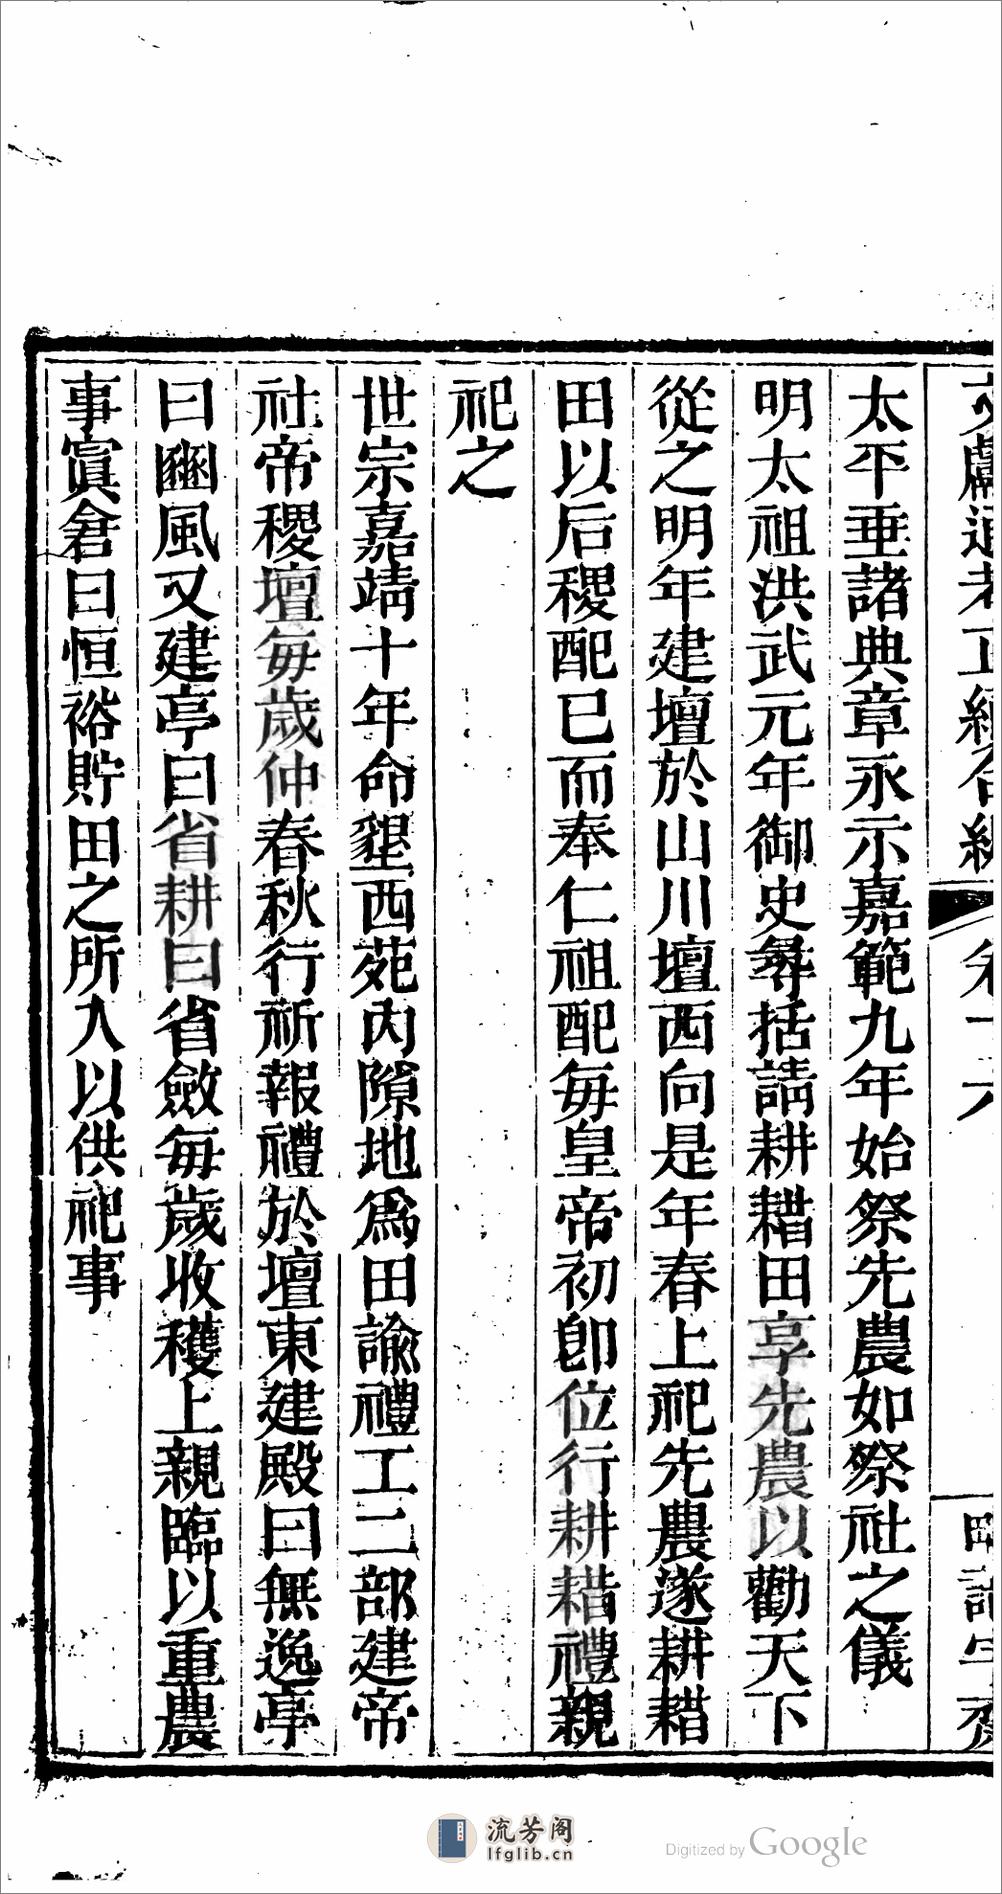 太平垂諸典章永示嘉範九年始祭先農如祭社之儀
明太祖洪武元年御史尋括請耕耤田享先農以勸天下
從之明年建壇於山川壇西向是年春上祀先農遂耕耤
田以后稷配已而奉仁祖配每皇帝初即位行耕耤禮親
祀之
世宗嘉靖十年命墾西苑內隙地為田諭禮工二部建帝
社帝稷壇每歲仲春秋行祈報禮於壇東建殿曰無逸亭
曰豳風又建亭曰省耕曰省斂每歲收穫上親臨以重農
事賔倉曰恒裕貯田之所入以供祀事
流芳阁
lfglib.cn
Digitized by Google